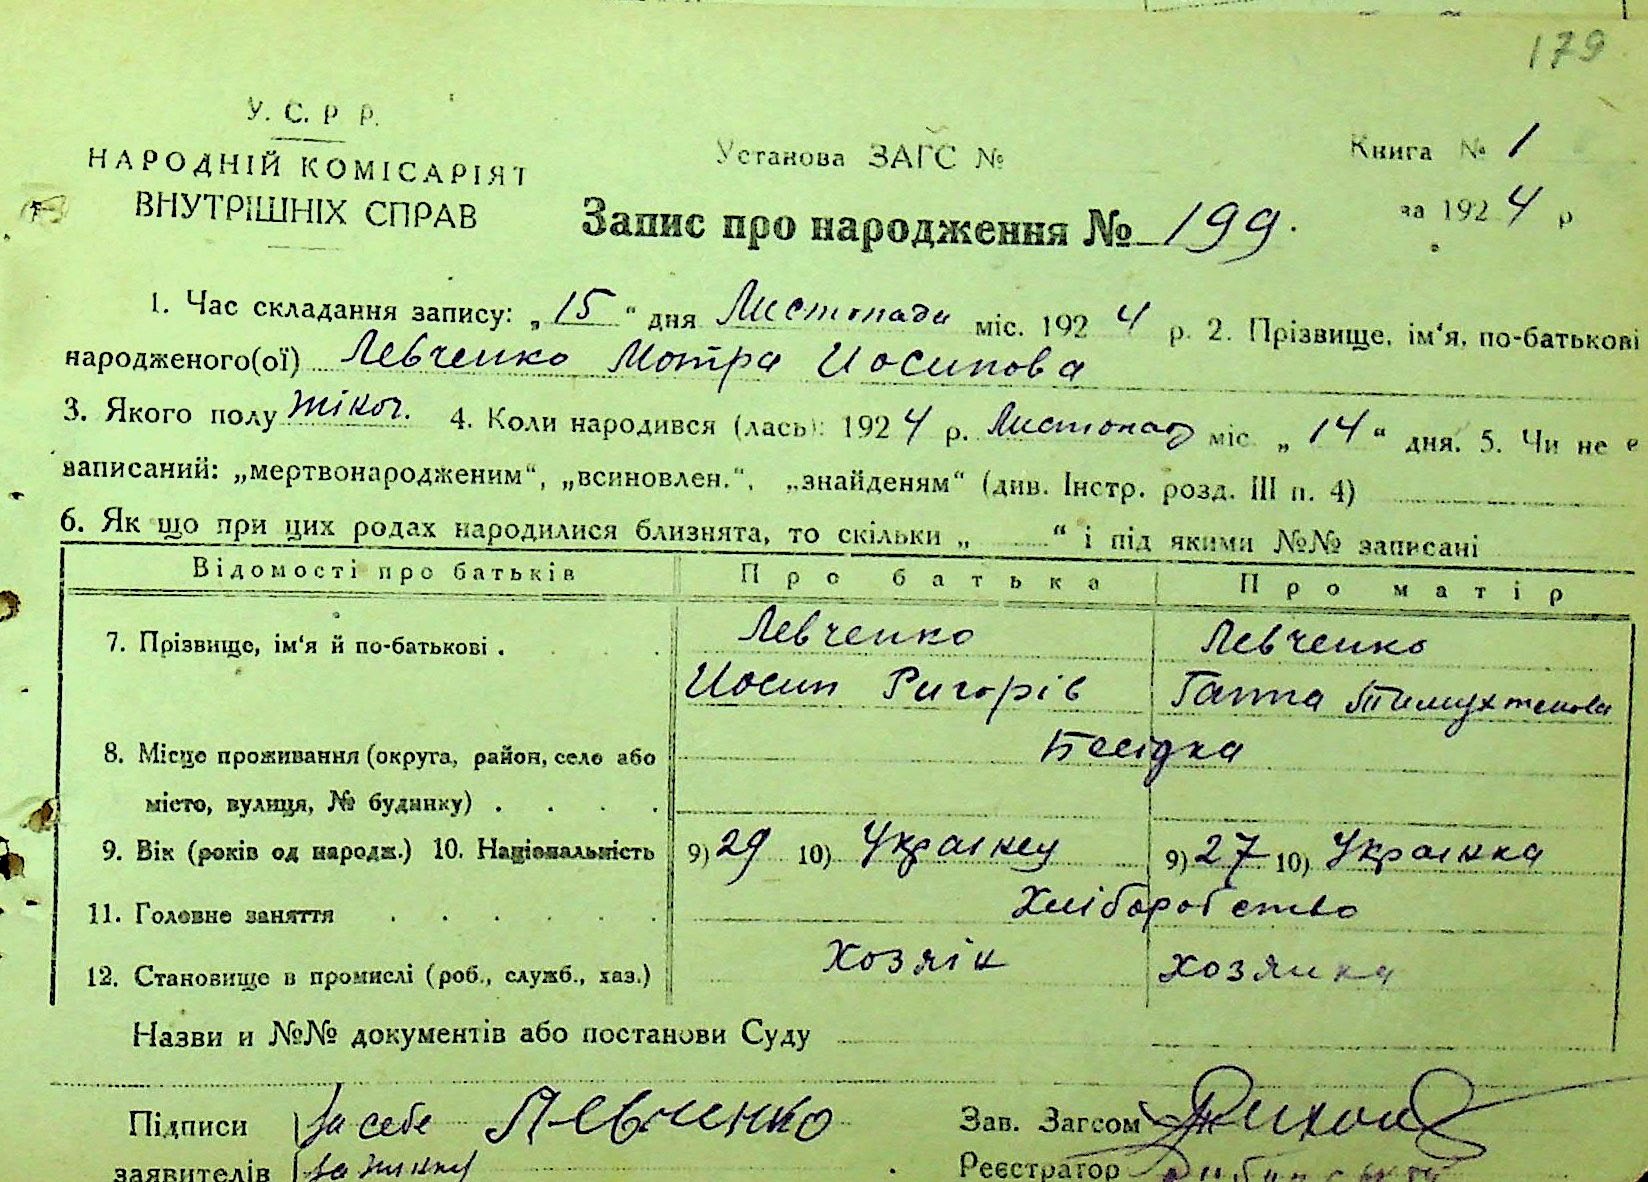 179
У. С. Р Р.
НАРОДНІЙ КОМІСАРІЯТ
ВНУТРІШНІХ СПРАВ
Установа ЗАГС №
Книга № 1
за 1924 р
Запис про народження № 199.
1. Час складання запису: „15“ дня Листопада міс. 1924 р. 2. Прізвище, ім‘я, по-батькові
народженого(ої) Левченко Мотра Иосипова
3. Якого полу жіноч. 4. Коли народився (лась): 1924 р. Листопад міс „14“ дня. 5. Чи не є
записаний: „мертвонародженим“, „всиновлен.“, „знайденям“ (див. Інстр. розд. III п. 4)
6. Як що при цих родах народилися близнята, то скільки „ “ і під якими №№ записані
Відомості про батьків Про батька Про матір
7. Прізвище, ім‘я й по-батькові . Левченко Левченко
Иосип Ригорів Ганна
8. Місце проживання (округа, район, село або Бесідка
місто, вулиця, № будинку) . . . .
9. Вік (років од народж.) 10. Національність 9) 29 10) Українец 9) 27 10) Українка
11. Головне заняття . . . . . . Хліборобство
12. Становище в промислі (роб., служб., хаз.) Хозяїн хозяйка
Назви и №№ документів або постанови Суду
Підписи За себе Левченко
заявителів За жинку
Зав. Загсом
Реєстратор